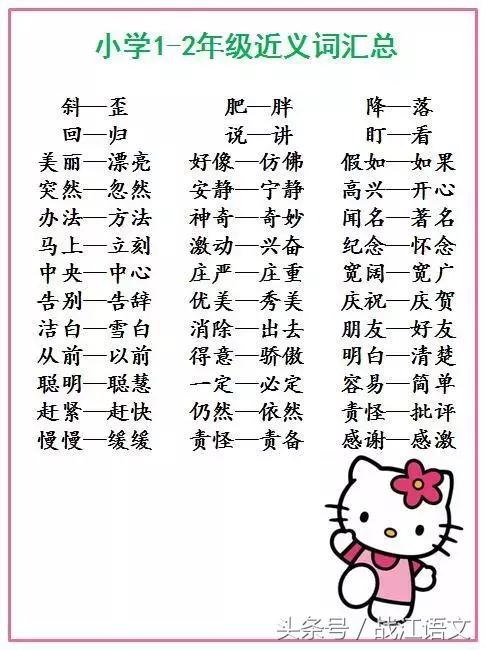 小学1-2年级近义词汇总
斜—歪 肥—胖 降—落
回—归 说—讲 盯—看
美丽—漂亮 好像—仿佛 假如—如果
突然—忽然 安静—宁静 高兴—开心
办法—方法 神奇—奇妙 闻名—著名
马上—立刻 激动—兴奋 纪念—怀念
中央—中心 庄严—庄重 宽阔—宽广
告别—告辞 优美—秀美 庆祝—庆贺
洁白—雪白 消除—出去 朋友—好友
从前—以前 得意—骄傲 明白—清楚
聪明—聪慧 一定—必定 容易—简单
赶紧—赶快 仍然—依然 责怪—批评
慢慢—缓缓 责怪—责备 感谢—感激
头条号/战江语文